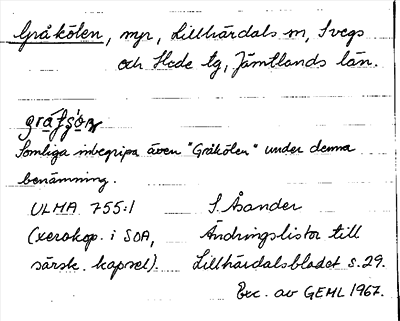 Gråkölen, myr, Lillhärdals sn, Svegs
och Hede tg, Jämtlands län.
Somliga inbegripa även "Gråkölen" under denna
benämning.
ULMA 755:1 S. Åsander
(xerokop. i SOA, Ändringslistor till
särsk. kapsel). Lillhärdalsbladet s. 29.
Exc. av GEML 1967.